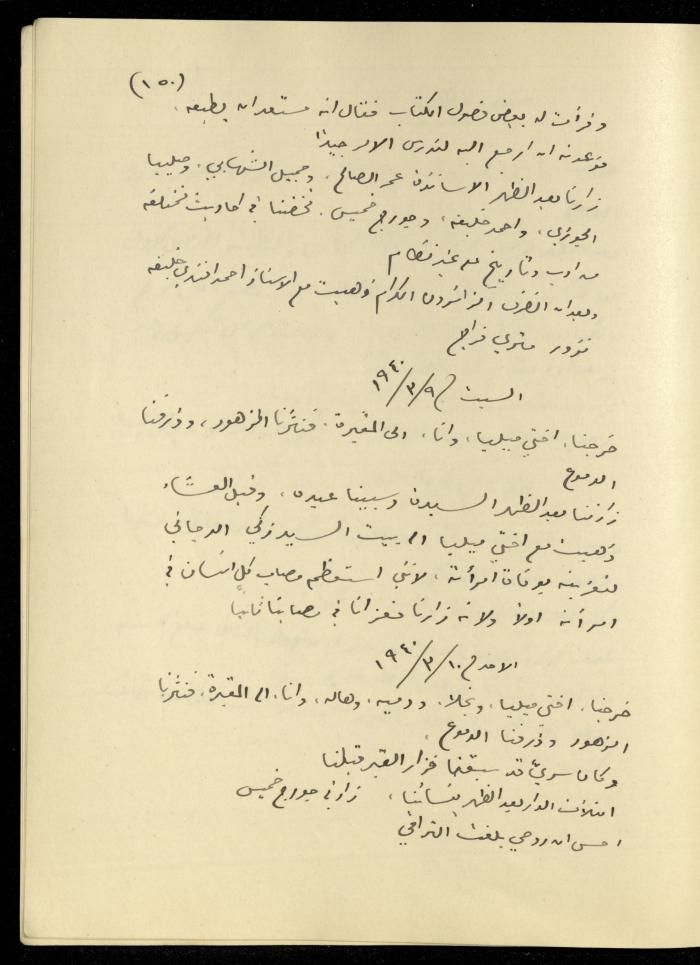 (١٥٠)
وقرأت له بعض فصول الكتاب فقال انه مستعد ان يطبعه.
فوعدته ان ارجع اليه لندرس الامر جيداً
زارنا بعد الظهر الاساتذة عمر الصالح، وجميل الشهابي، وحليبيا
الجوزي، واحمد خليفه، وجورج خميس. فخضنا في احاديث مختلفه
من ادب وتاريخ على غير نظام
وبعد ان انصرف الزائرون الكرام ذهبت مع الاستاذ احمد افندي خليفه
نزور متري فراج
السبت في ٩/٣/١٩٤٠
خرجنا، اختي ميليا، وانا، الى المقبرة. فنثرنا الزهور، وذرفنا
الدموع
زارتنا بعد الظهر السيدة وسبينا عبده، وقبل العشاء
ذهبت مع اختي ميليا الى بيت السيد زكي الدجاني
لتعزيته بوفاة امرأته، لانني استعظم مصاب كل انسان في
امرأته اولاً ولانه زارنا فعزانا في مصابنا ثانياً
الاحد في ١٠/٣/١٩٤٠
خرجنا، اختي ميليا، ونجلا، ودميه، وهاله، وانا، الى المقبرة. فنثرنا
الزهور وذرفنا الدموع.
وكان سري قد سبقنا فزار القبر قبلنا
امتلأت الدار بعد الظهر بنسائنا، زارني جورج خميس
احس ان روحي بلغت التراقي